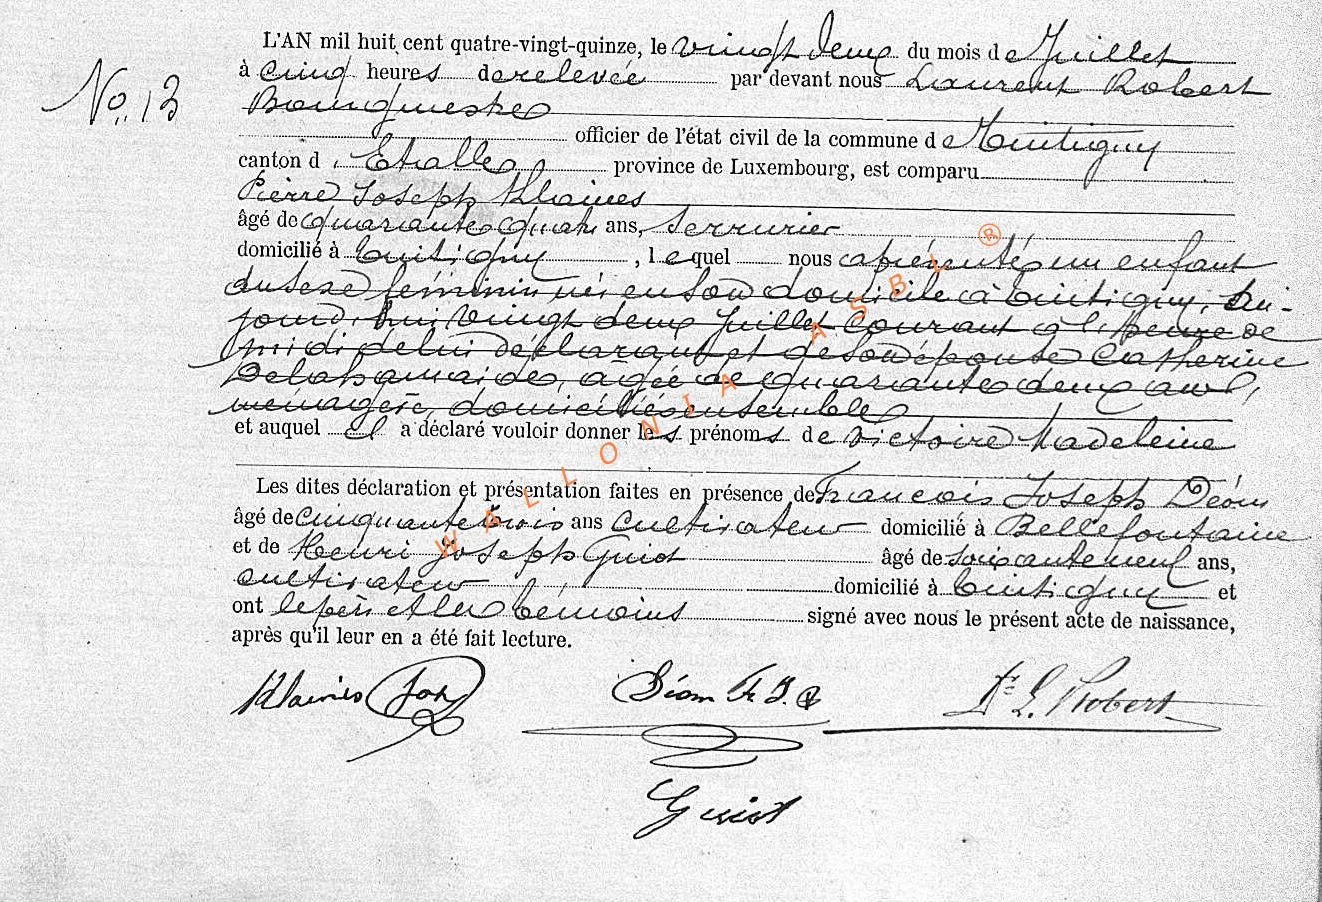 L'AN mil huit cent quatre-vingt-quinze, le vingt deux du mois de Juillet
No 13
à cinq heures de relevée par devant nous Laurent Robert
Bourgmestre
officier de l'état civil de la commune de Tintigny
canton d'Etalle province de Luxembourg, est comparu
Pierre Joseph Klaines
âgé de quarante quatre ans, serrurier
domicilié à Tintigny, lequel nous a présenté un enfant
du sexe féminin né en son domicile à Tintigny, au-
jourd'hui vingt deux Juillet courant à l'heure de
midi de lui déclarant et de son épouse Catherine
âgée de quarante deux ans,
ménagère, domiciliés ensemble
et auquel il a déclaré vouloir donner les prénoms de Victoire Madeleine
Les dites déclaration et présentation faites en présence de Francois Joseph Déom
âgé de cinquante trois ans cultivateur domicilié à Bellefontaine
et de Henri Joseph Guiot âgé de soixante neuf ans,
cultivateur domicilié à Tintigny et
ont le père et les témoins signé avec nous le présent acte de naissance,
après qu'il leur en a été fait lecture.
Klaines Jos Déom Fr. J. L. Robert
Guiot
WALLONIA ASBL ®